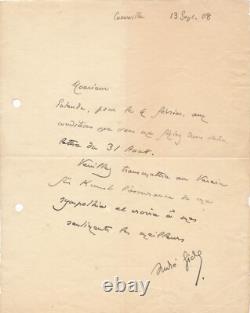 Cuverville 13 Sept. 08
Monsieur
Entendu, pour le 4 février, aux
conditions que vous me fixez dans votre
lettre du 31 Août.
Veuillez transmettre au
l'assurance de mes
sympathies et croire à mes
sentiments les meilleurs
André Gide